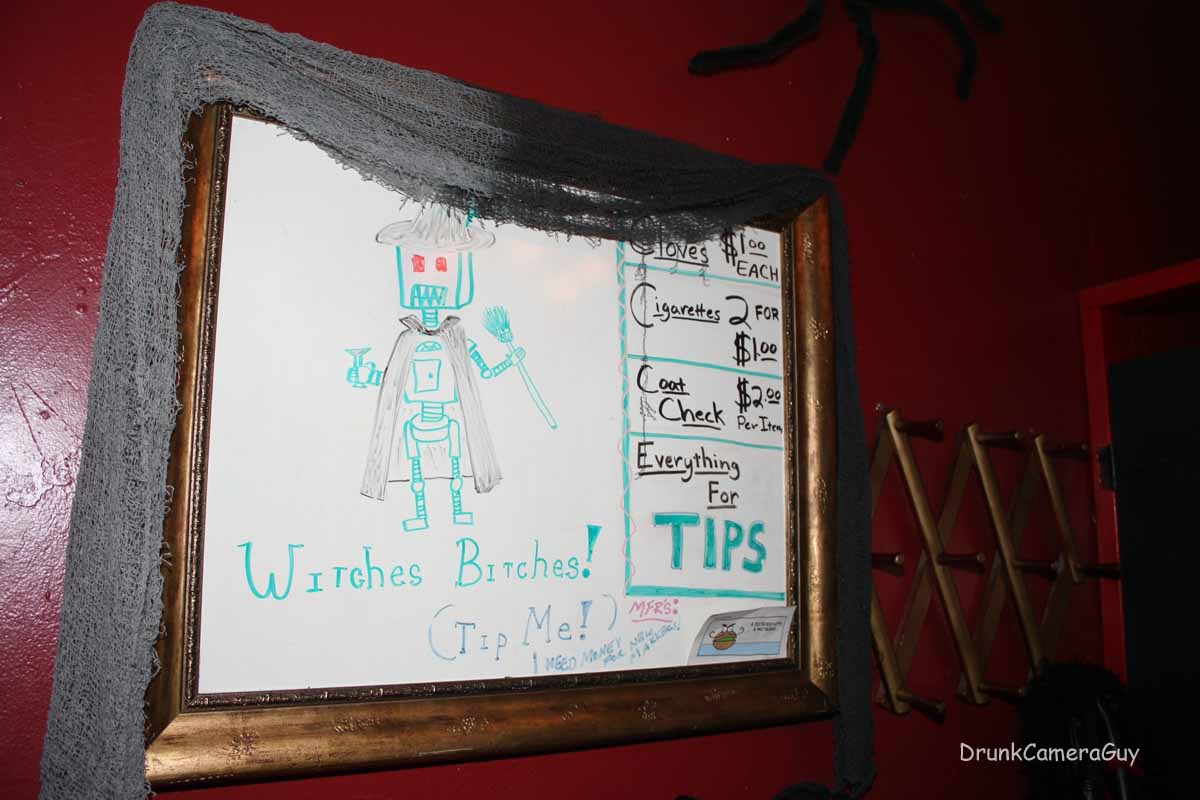 Cloves $1.00
EACH
Cigarettes 2 FOR
$1.00
Coat $2.00
Check Per Item
Everything
For
TIPS
Witches Bitches!
(Tip Me!)
MFR'S:
I NEED MONEY
FOR NEW
MARKERS!
DrunkCameraGuy